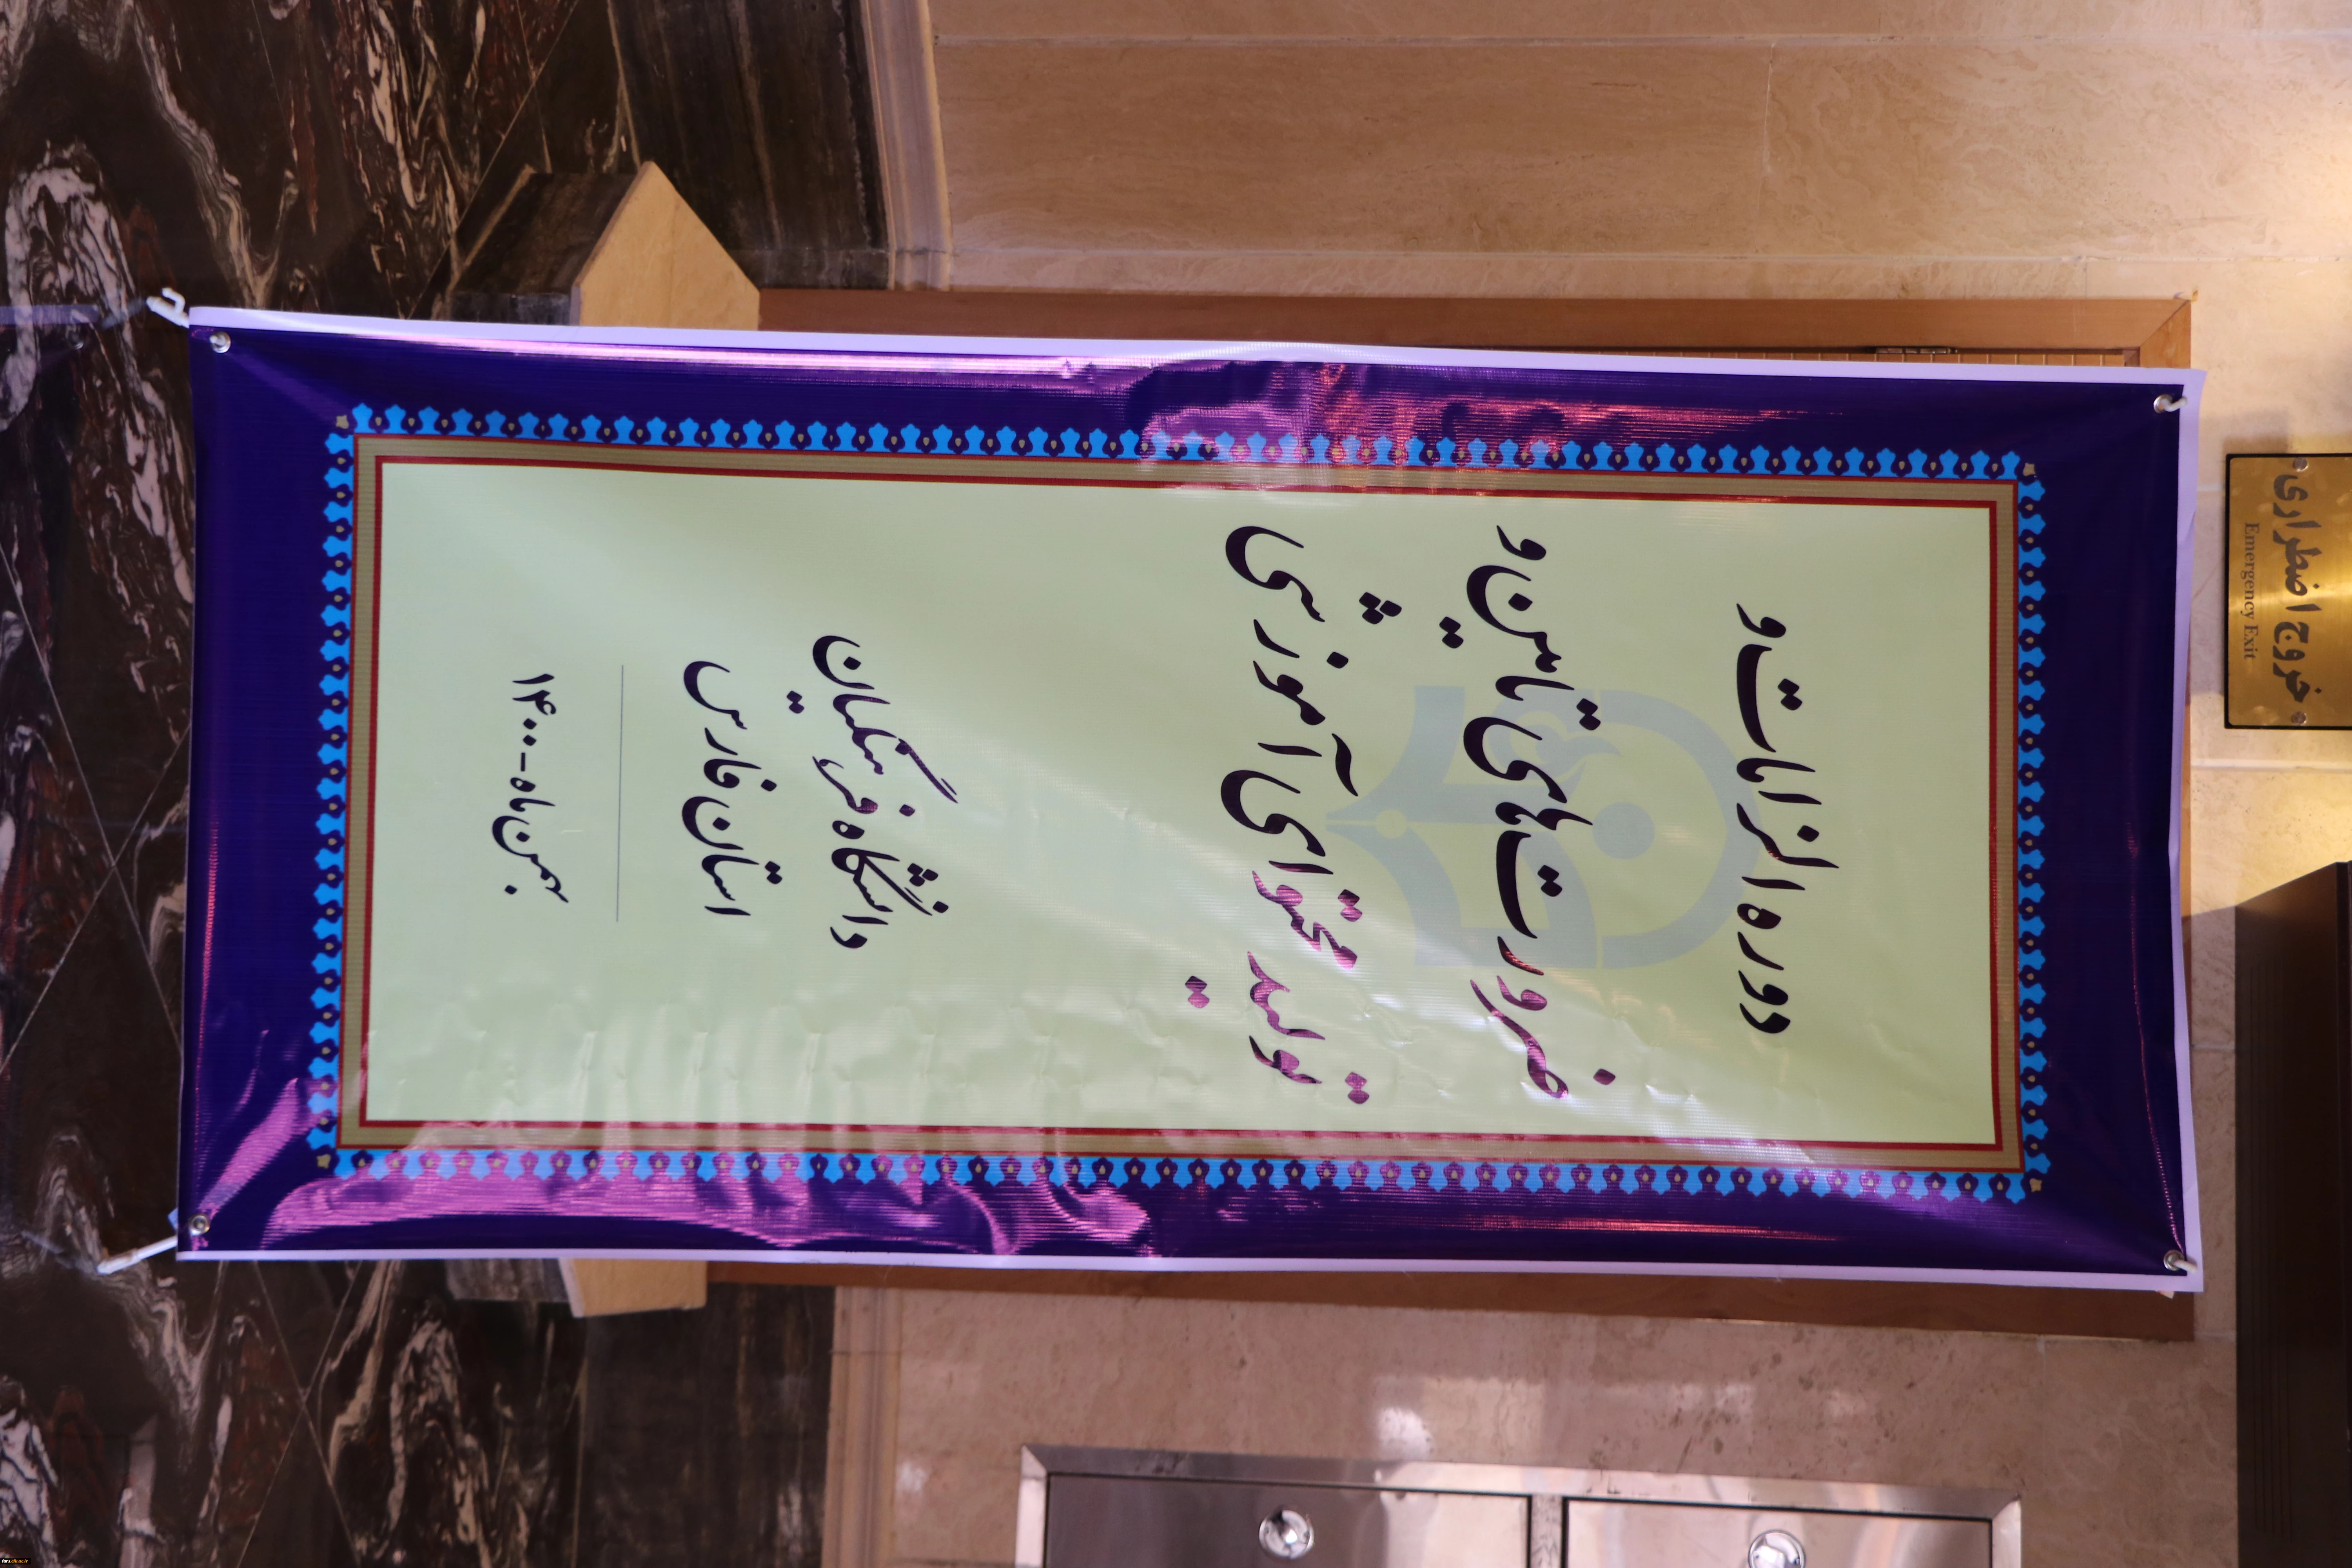 دوره الزامات و
ضرورت‌های تامین و
تولید محتوای آموزشی
دانشگاه فرهنگیان
استان فارس
بهمن ماه - ۱۴۰۰
خروج اضطراری
Emergency Exit